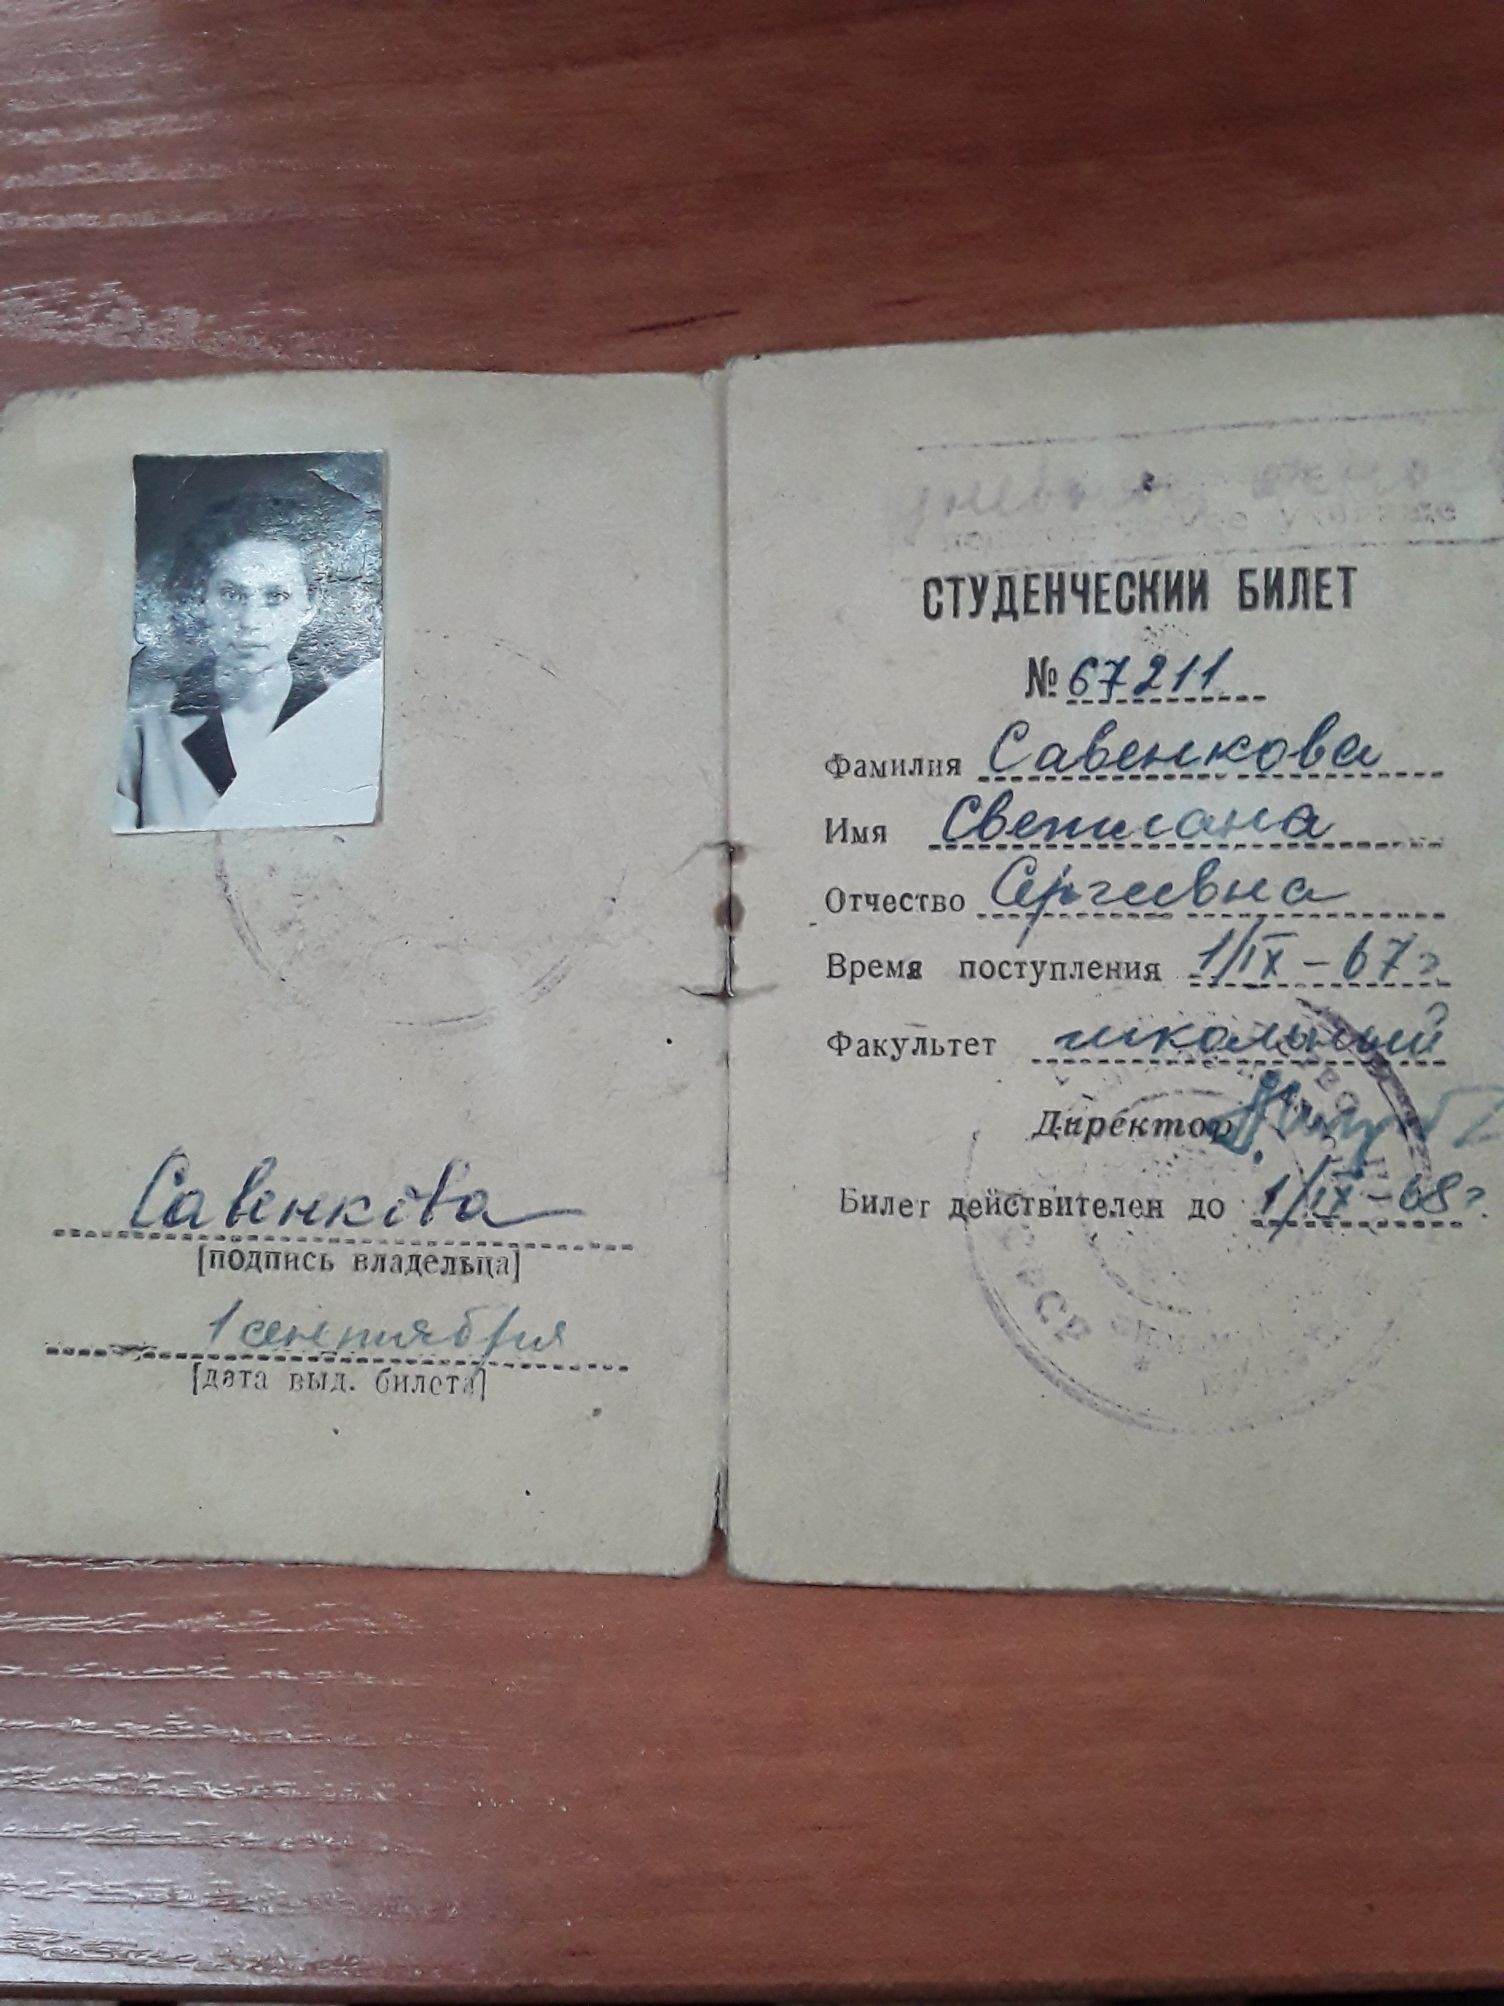 Савенкова
[подпись владельца]
1 сентября
[дата выд. билета]
училище
СТУДЕНЧЕСКИЙ БИЛЕТ
№ 67211
Фамилия Савенкова
Имя Светлана
Отчество Сергеевна
Время поступления 1/IX – 67 г.
Факультет школьный
Директор
Билет действителен до 1/IX – 68 г.